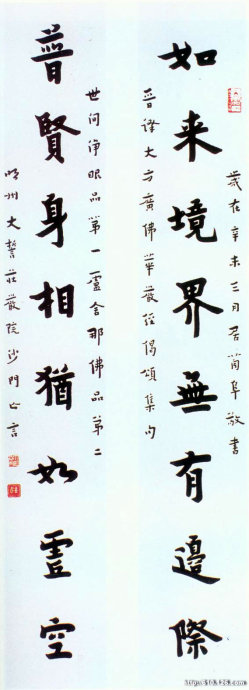 歲在辛未三月居蘭阜敬書
如来境界無有邊際
晉譯大方廣佛華嚴經偈頌集句
世间淨眼品第一盧舍那佛品第二
普賢身相猶如虛空
明州大誓莊嚴院沙門亡言